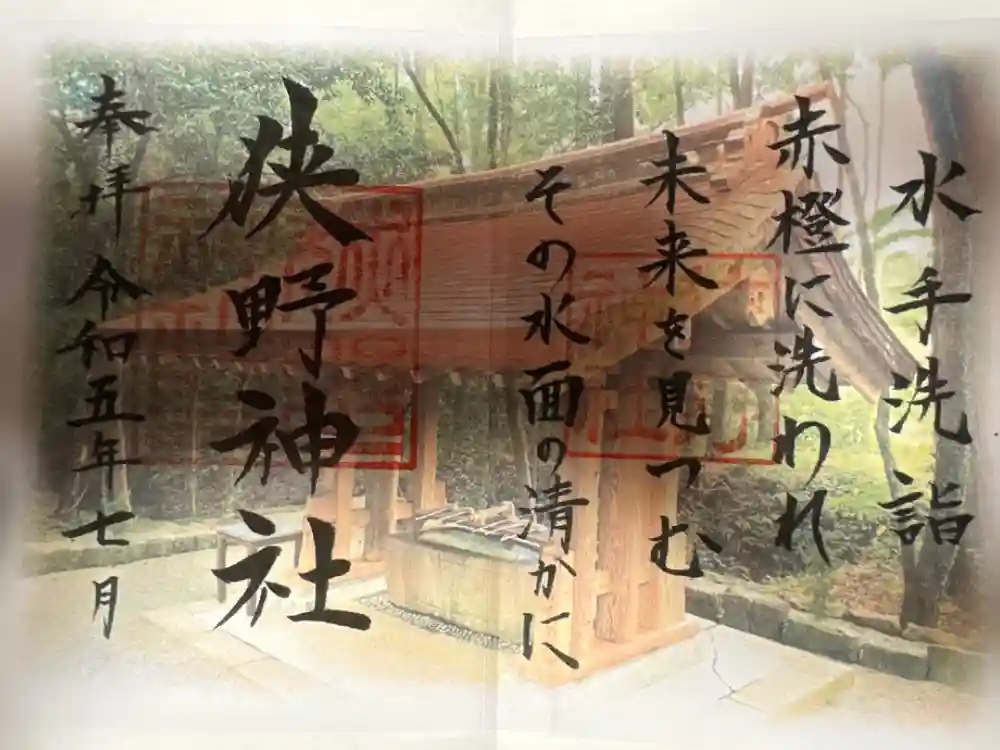 水手洗詣
赤橙に洗われ
未来を見つむ
その水面の清かに
狭野神社
奉拝 令和五年七月